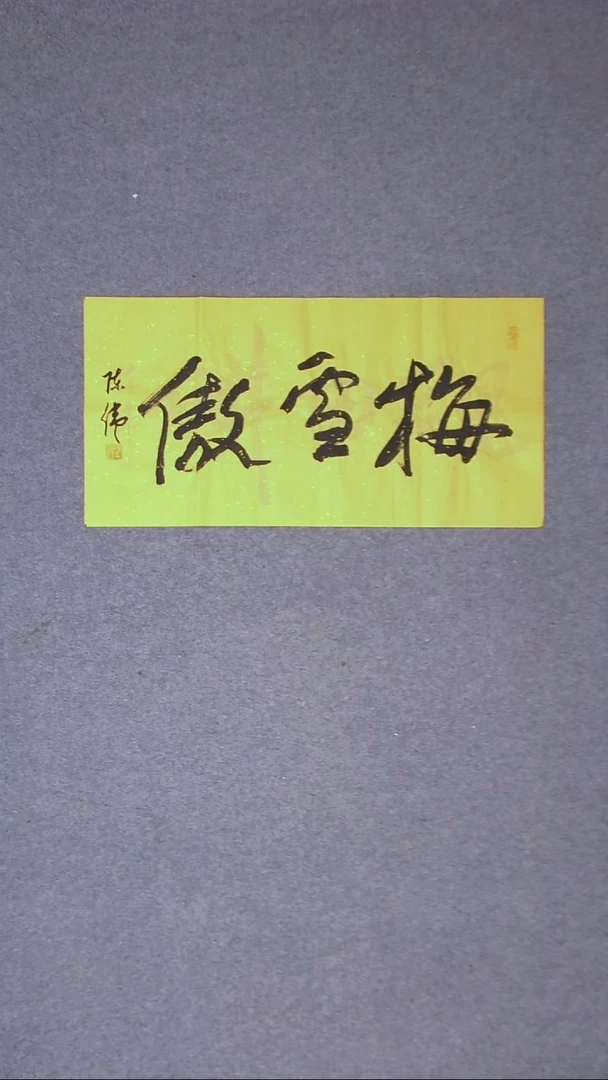 梅雪傲
陈伟